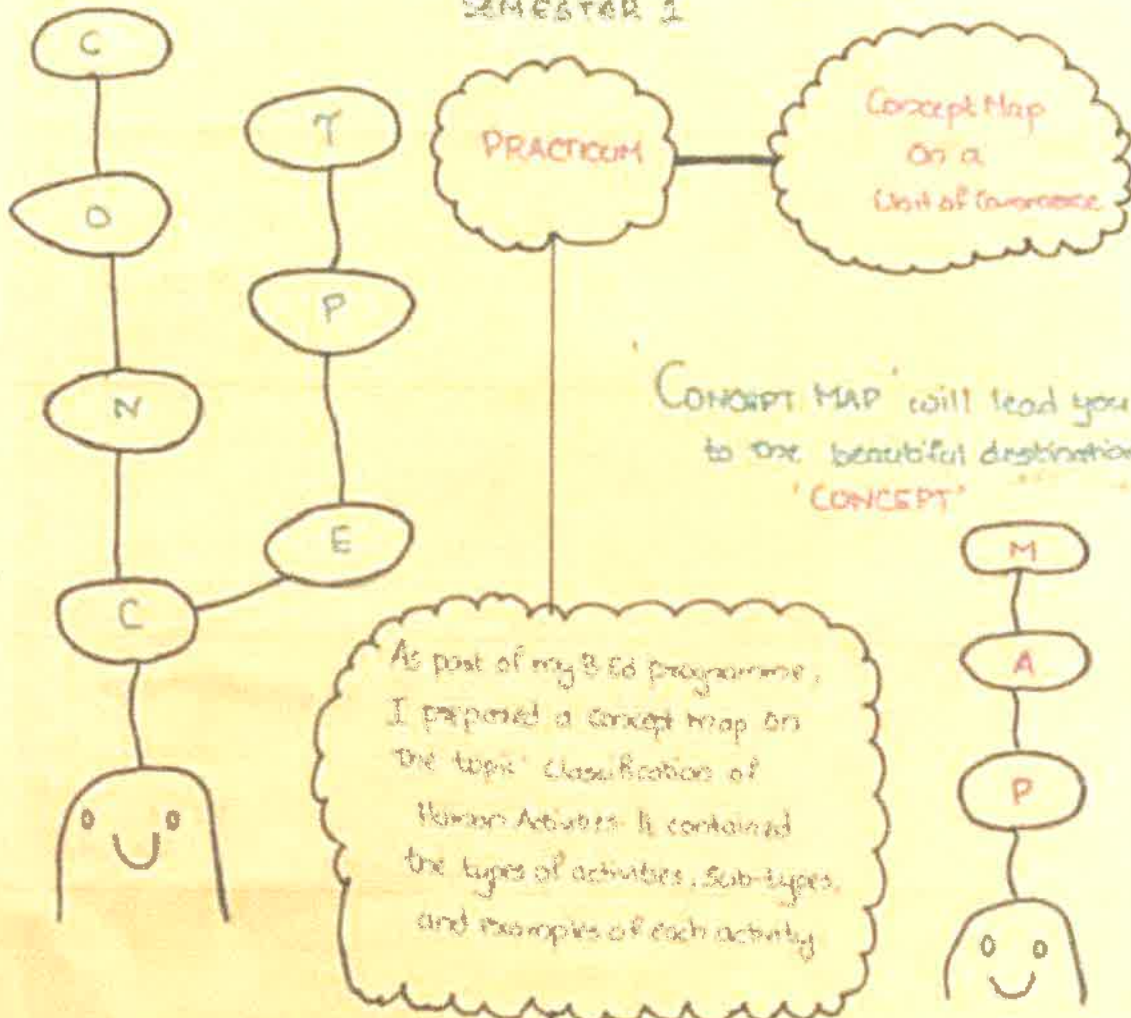 SEMESTER 1
C
O
N
C
E
P
T
PRACTICUM
Concept Map
on a
Unit of Commerce
'CONCEPT MAP' will lead you
to the beautiful destination
'CONCEPT'
M
A
P
As part of my B Ed programme,
I prepared a concept map on
the topic 'Classification of
Human Activities. It contained
the types of activities, Sub-types,
and examples of each activity